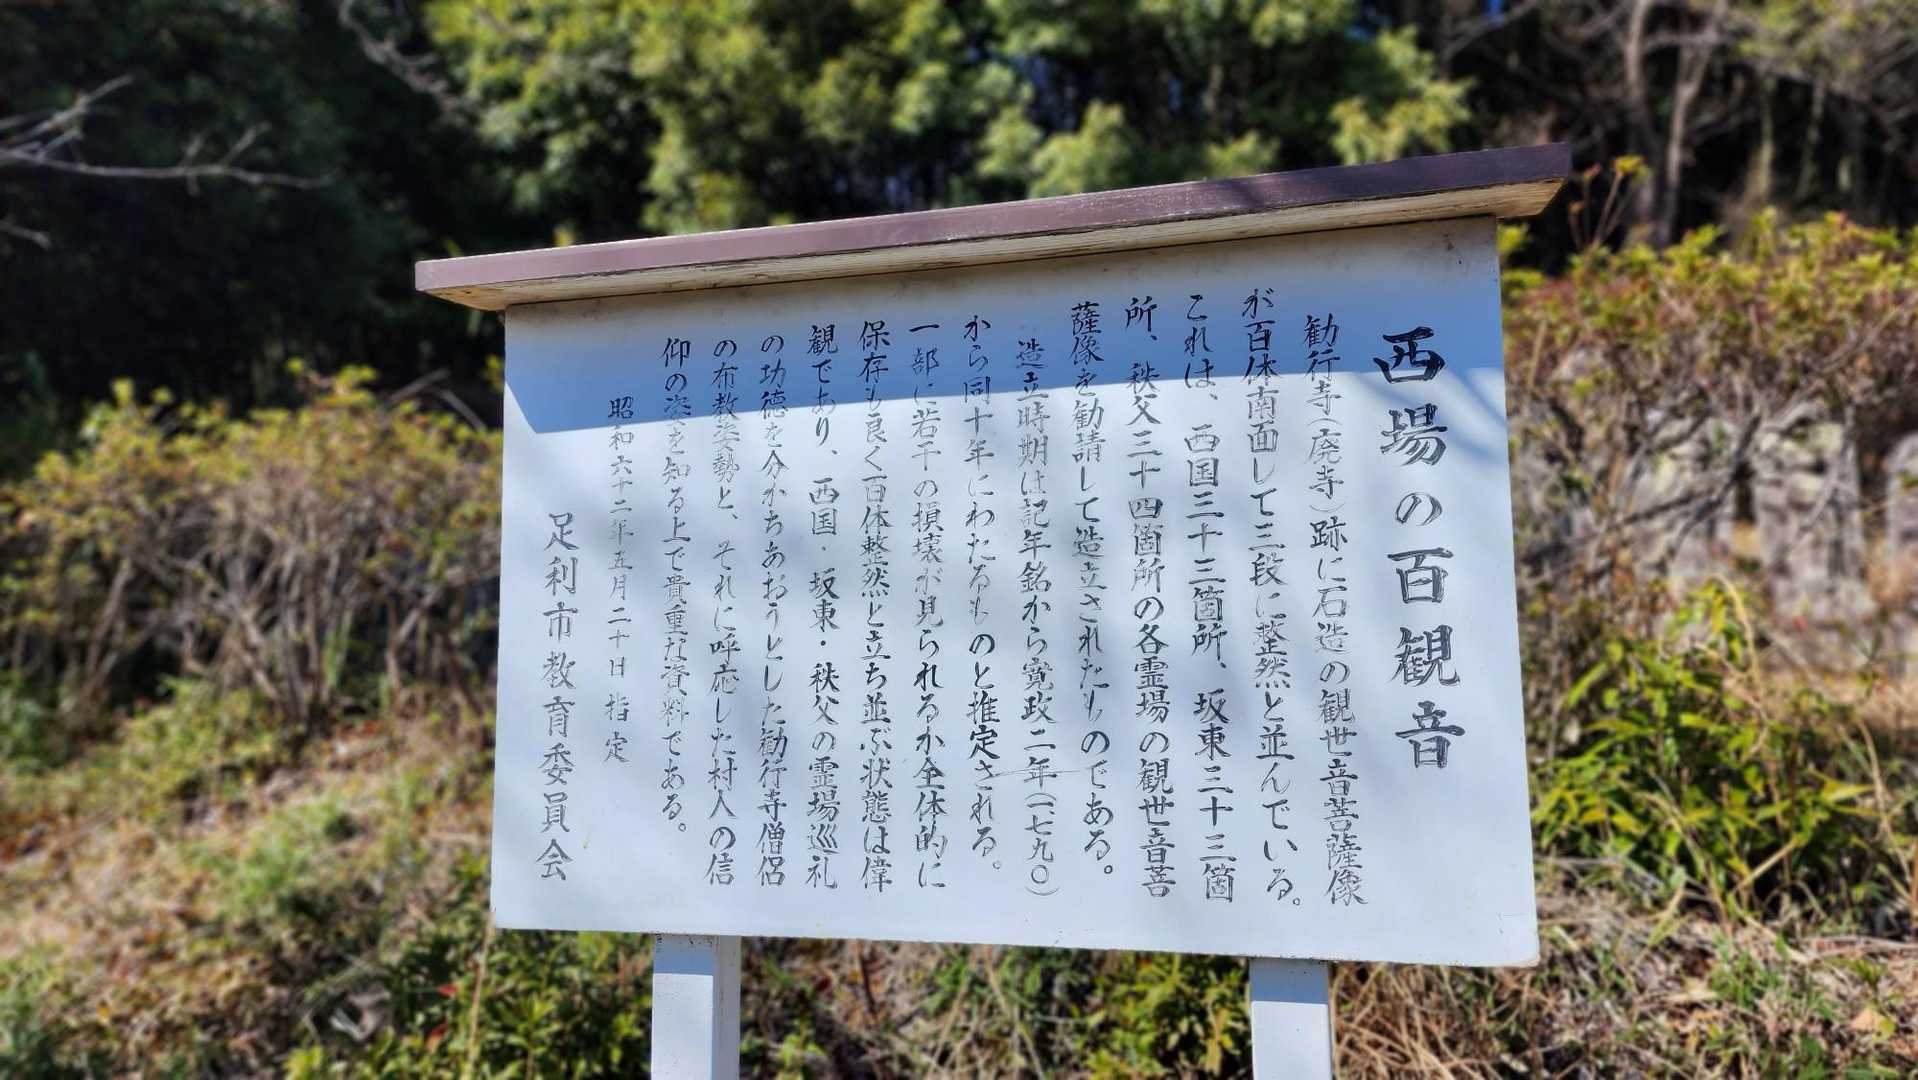 西場の百観音
勧行寺（廃寺）跡に石造の観世音菩薩像
が百体南面して三段に整然と並んでいる。
これは、西国三十三箇所、坂東三十三箇
所、秩父三十四箇所の各霊場の観世音菩
薩像を勧請して造立されたものである。
造立時期は記年銘から寛政二年（一七九〇）
から同十年にわたるものと推定される。
一部に若干の損壊が見られるが全体的に
保存も良く百体整然と立ち並ぶ状態は偉
観であり、西国・坂東・秩父の霊場巡礼
の功徳を分かちあおうとした勧行寺僧侶
の布教姿勢と、それに呼応した村人の信
仰の姿を知る上で貴重な資料である。
昭和六十二年五月二十日指定
足利市教育委員会